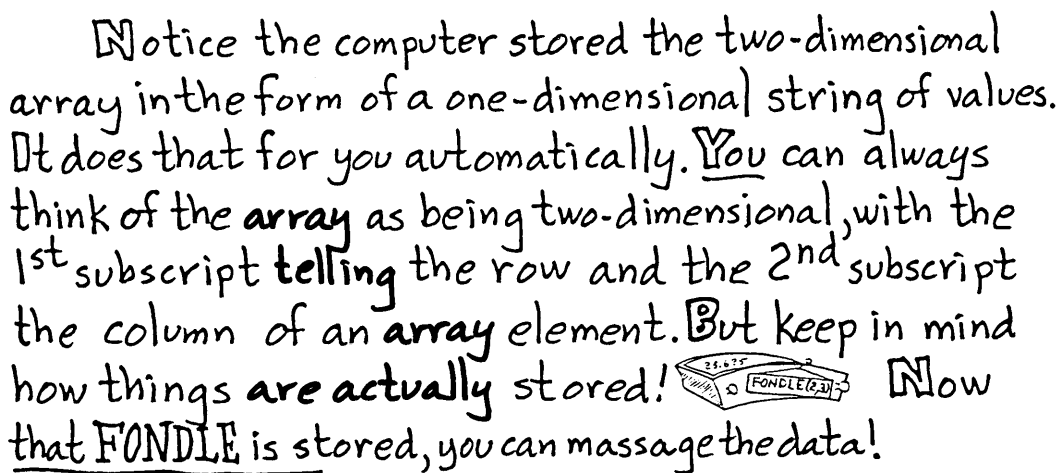 Notice the computer stored the two-dimensional
array in the form of a one-dimensional string of values.
It does that for you automatically. You can always
think of the array as being two-dimensional, with the
1st subscript telling the row and the 2nd subscript
the column of an array element. But keep in mind
how things are actually stored! 25.625 FONDLE(2,3) Now
that FONDLE is stored, you can massage the data!